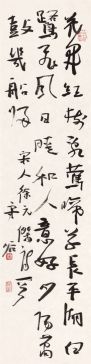 花開紅樹亂鶯啼草長平湖白
鷺飛風日晴和人意好夕陽簫
鼓幾船歸
宋人徐元傑